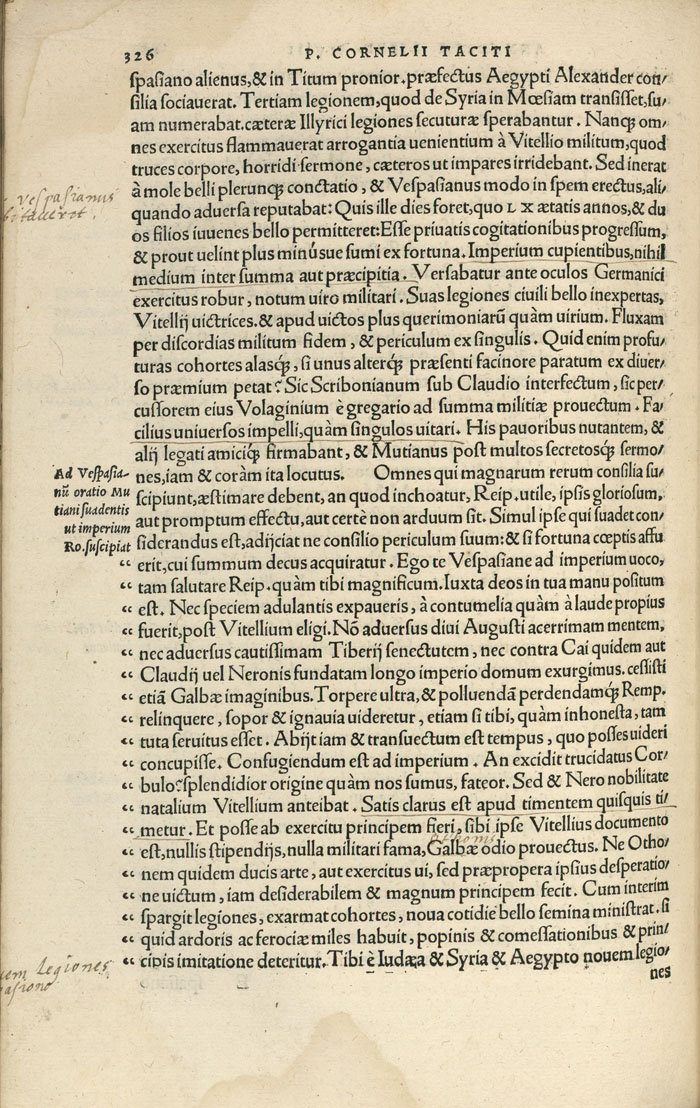 326 P. CORNELII TACITI
spasiano alienus,& in Titum pronior.præfectus Aegypti Alexander con/
silia sociauerat. Tertiam legionem,quod de Syria in Mœsiam transisset,su/
am numerabat.cæteræ Illyrici legiones secuturæ sperabantur. Nanq; om/
nes exercitus flammauerat arrogantia uenientium à Vitellio militum,quod
truces corpore, horridi sermone, cæteros ut impares irridebant. Sed inerat
à mole belli plerunq; conctatio, & Vespasianus modo in spem erectus,ali/
Vespasianus
quando aduersa reputabat: Quis ille dies foret,quo LX ætatis annos,& du
os filios iuuenes bello permitteret:Esse priuatis cogitationibus progressum,
& prout uelint plus minúsue sumi ex fortuna. Imperium cupientibus,nihil
medium inter summa aut præcipitia. Versabatur ante oculos Germanici
exercitus robur, notum uiro militari. Suas legiones ciuili bello inexpertas,
Vitellij uictrices.& apud uictos plus querimoniarū quàm uirium. Fluxam
per discordias militum fidem, & periculum ex singulis. Quid enim profu/
turas cohortes alasq́;, si unus alterq́; præsenti facinore paratum ex diuer/
so præmium petat? Sic Scribonianum sub Claudio interfectum, sic per/
cussorem eius Volaginium è gregario ad summa militiæ prouectum. Fa/
cilius uniuersos impelli,quàm singulos uitari. His pauoribus nutantem, &
alij legati amiciq́; firmabant, & Mutianus post multos secretosq́; sermo/
nes,iam & coràm ita locutus. Omnes qui magnarum rerum consilia su/
scipiunt,æstimare debent, an quod inchoatur, Reip.utile, ipsis gloriosum,
aut promptum effectu,aut certè non arduum sit. Simul ipse qui suadet con/
siderandus est,adijciat ne consilio periculum suum:& si fortuna cœptis affu
Ad Vespasia-
nū oratio Mu
tiani suadentis
ut imperium
Ro.suscipiat
“ erit,cui summum decus acquiratur. Ego te Vespasiane ad imperium uoco,
“ tam salutare Reip.quàm tibi magnificum.Iuxta deos in tua manu positum
“ est. Nec speciem adulantis expaueris, à contumelia quàm à laude propius
“ fuerit,post Vitellium eligi.Nō aduersus diui Augusti acerrimam mentem,
“ nec aduersus cautissimam Tiberij senectutem, nec contra Caí quidem aut
“ Claudij uel Neronis fundatam longo imperio domum exurgimus.cessisti
“ etiā Galbæ imaginibus.Torpere ultra,& polluendā perdendamq́; Remp.
“ relinquere, sopor & ignauia uideretur, etiam si tibi, quàm inhonesta, tam
“ tuta seruitus esset. Abijt iam & transuectum est tempus, quo posses uideri
“ concupisse. Confugiendum est ad imperium. An excidit trucidatus Cor/
“ bulo?splendidior origine quàm nos sumus, fateor. Sed & Nero nobilitate
“ natalium Vitellium anteibat. Satis clarus est apud timentem quisquis ti/
“ metur. Et posse ab exercitu principem fieri, sibi ipse Vitellius documento
“ est,nullis stipendijs,nulla militari fama,Galbæ odio prouectus. Ne Otho/
“ nem quidem ducis arte, aut exercitus ui, sed præpropera ipsius desperatio/
“ ne uictum, iam desiderabilem & magnum principem fecit. Cum interim
“ spargit legiones, exarmat cohortes, noua cotidie bello semina ministrat. si
“ quid ardoris ac ferociæ miles habuit, popinis & comessationibus & prin/
“ cipis imitatione deteritur. Tibi è Iudæa & Syria & Aegypto nouem legio/
legiones
nes